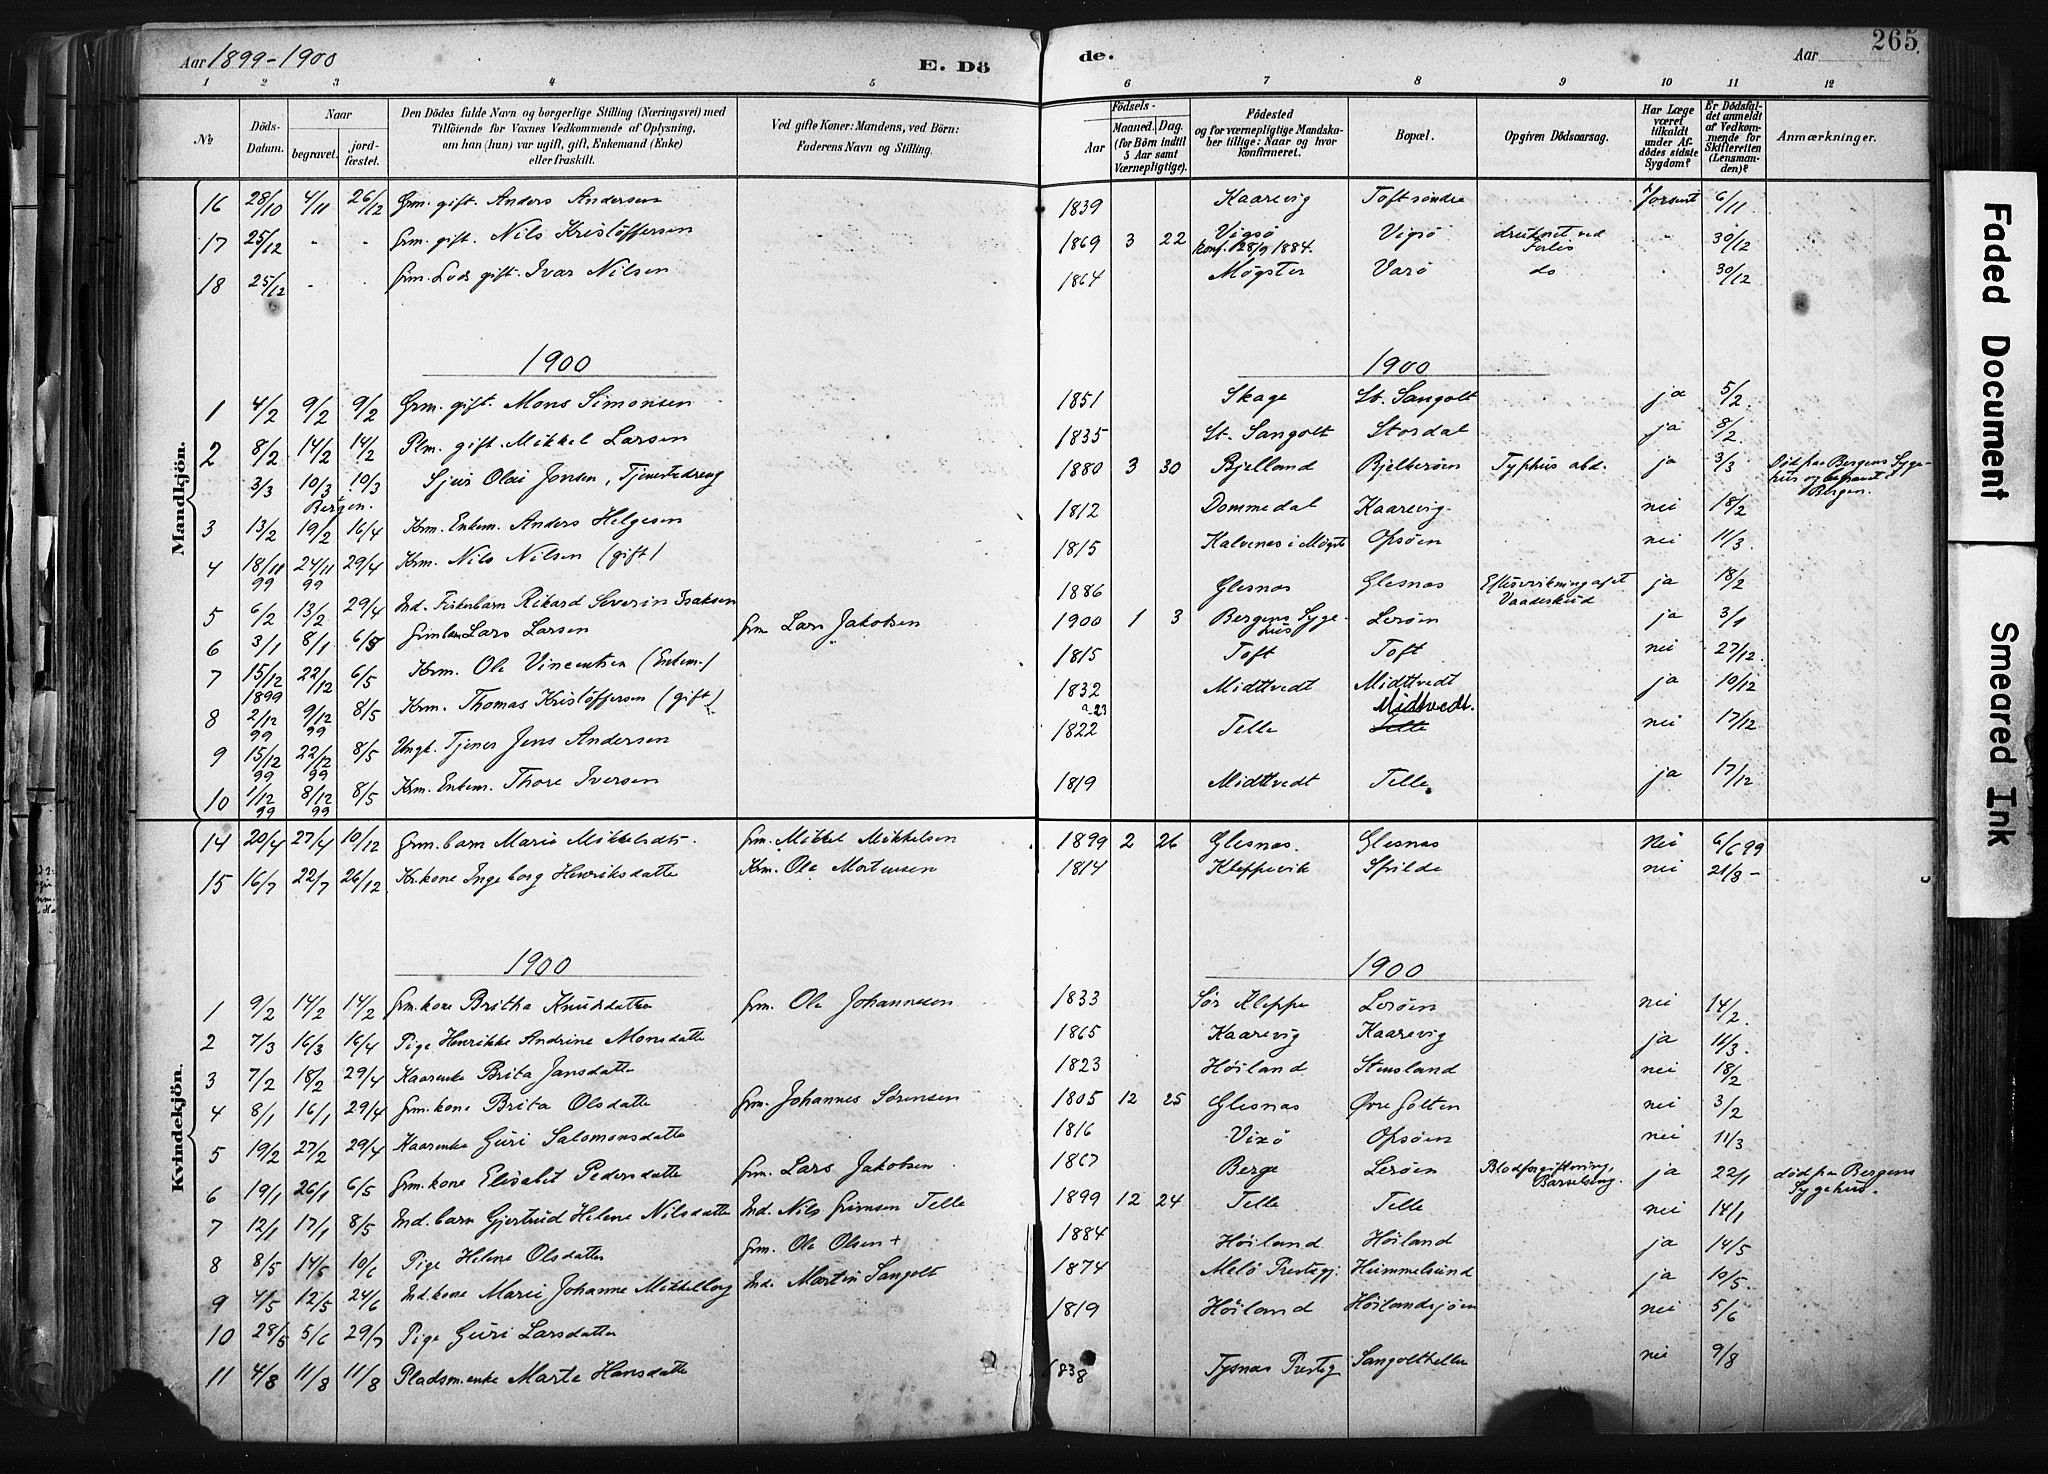 Aar 1899-1900
E. Dö
de.
Aar
265.
1 2 3 4 5 6 7 8 9 10 11 12
№
Döds-Datum.
Naar
begravet.
jord-fæstet.
Den Dödes fulde Navn og borgerlige Stilling (Næringsvei) med
Tilföiende for Voxnes Vedkommende af Oplysning,
om han (hun) var ugift, gift, Enkemand (Enke)
eller fraskilt.
Ved gifte Koner: Mandens, ved Börn:
Faderens Navn og Stilling.
Födsels-
Aar
Maaned. Dag.
(for Börn indtil
5 Aar samt
Værnepligtige).
Födested
og for værnepligtige Mandska-
ber tillige: Naar og hvor
konfirmeret.
Bopæl.
Opgiven Dödsaarsag.
Har Læge
været
tilkaldt
under Af-
dödes sidste
Sygdom?
Er Dödsfal-
det anmeldt
af Vedkom-
mende for
Skifteretten
(Lensman-
den)?
Anmærkninger.
Mandkjön.
16 28/10 4/11 26/12 Grm. gift. Anders Andersen 1839 Kaarevig Toft söndre forsent 6/11
17 25/12 - - Grm. gift. Nils Kristöffersen 1869 3 22 Vigsö Vigsö druknet ved 30/12
konf. 28/9 1884. Forlis
18 25/12 - - Grm. Lods gift. Ivar Nilsen 1864 Møgster Varö do 30/12
1900 1900
1 4/2 9/2 9/2 Grm. gift. Mons Simonsen 1851 Skage St. Sangolt ja 5/2
2 8/2 14/2 14/2 Plm. gift. Mikkel Larsen 1835 St. Sangolt Stordal ja 8/2
3/3 10/3 10/3 Sjur Olai Jonsen, Tjenestedreng 1880 3 30 Bjelland Bjelberøen Typhus abd. ja 3/3 Död paa Bergens Syge-
Bergen. hus og begravet i
Bergen.
3 13/2 19/2 16/4 Krm. Enkem. Anders Helgesen 1812 Dommedal Kaarevig nei 18/2
4 18/11 99 24/11 99 29/4 Krm. Nils Nilsen (gift) 1815 Kalvenes i Møgst. Opsøen nei 11/3
5 6/2 13/2 29/4 Ind. Fiskerbarn Rikard Severin Isaksen 1886 Glesnas Glesnas Eftervirkning af et ja 18/2
Vaadeskud
6 3/1 8/1 6/5 Grm barn Lars Larsen Grm Lars Jakobsen 1900 1 3 Bergens Syge- Lerøen ja 3/1
hus
7 15/12 1899 22/12 6/5 Krm. Ole Vincentsen (Enkem.) 1815 Toft Toft nei 27/12
8 2/12 99 9/12 99 8/5 Krm. Thomas Kristöffersen (gift) 1832 Midttvedt Midttvedt ja 10/12
9 15/12 99 22/12 99 8/5 Ungk. Tjener Jens Andersen 1822 Telle Midtvedt. nei 17/12
Telle
10 1/12 99 8/12 99 8/5 Krm. Enkem. Thore Iversen 1819 Midttvedt Telle. ja 17/12
Kvindekjön.
14 20/4 27/4 10/12 Grm. barn Marie Mikkelsdtr. Grm. Mikkel Mikkelsen 1899 2 26 Glesnas. Glesnas nei 6/6 99
15 16/7 22/7 26/12 Kr. kone Ingeborg Henriksdatter Krm. Ole Mortensen 1814 Kleppevik Spilde nei 21/8 -
1900 1900
1 9/2 14/2 14/2 Grm. kone Britha Knudsdatter Grm. Ole Johannesen 1833 Sör Kleppe Lerøen nei 14/2.
2 7/3 16/3 16/4 Pige Henrikke Andrine Monsdatter 1865 Kaarevig Kaarevig ja 11/3.
3 7/2 18/2 29/4 Kaarenke Brita Jansdatter 1823 Høiland Stensland nei 18/2
4 8/1 16/1 29/4 Grm. kone Brita Olsdatter Grm. Johannes Sörensen 1805 12 25 Glesnas Øvre Golten nei 3/2
5 19/2 27/2 29/4 Kaarenke Guri Salomonsdatter 1816 Vixö Opsøen nei 11/3
6 19/1 26/1 6/5 Grm. kone Elisabet Pedersdatter Grm. Lars Jakobsen 1867 Berge Lerøen Blodforgiftning, ja 22/1 död paa Bergens
Barselseng. Sygehus.
7 12/1 17/1 8/5 Ind. barn Gjertrud Helene Nilsdatter Ind. Nils Grimsen Telle 1899 12 24 Telle Telle nei 14/1
8 8/5 14/5 10/6 Pige Helene Olsdatter Grm. Ole Olsen + 1884 Høiland Høiland ja 14/5
9 4/5 12/5 24/6 Ind. kone Marie Johanne Mikkelborg Ind. Martin Sangolt 1874 Melö Prestegj. Hummelsund ja 10/5.
10 28/5 5/6 29/7 Pige Guri Larsdatter 1819 Høiland Høilandsjøen nei 5/6
11 4/8 11/8 11/8 Pladsm. enke Marte Hansdatter 1838 Tysnas Prestegj Sangolthellen nei 9/8
Faded Document
Smeared Ink